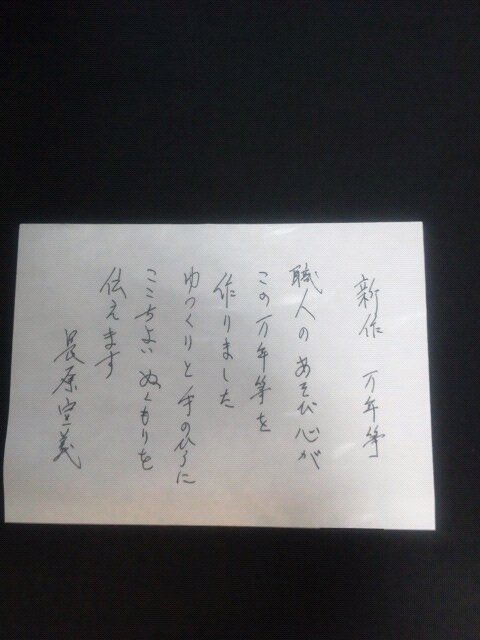 新作 万年筆
職人のあそび心が
この万年筆を
作りました
ゆっくりと手のひらに
ここちよいぬくもりを
伝えます
長原宣義